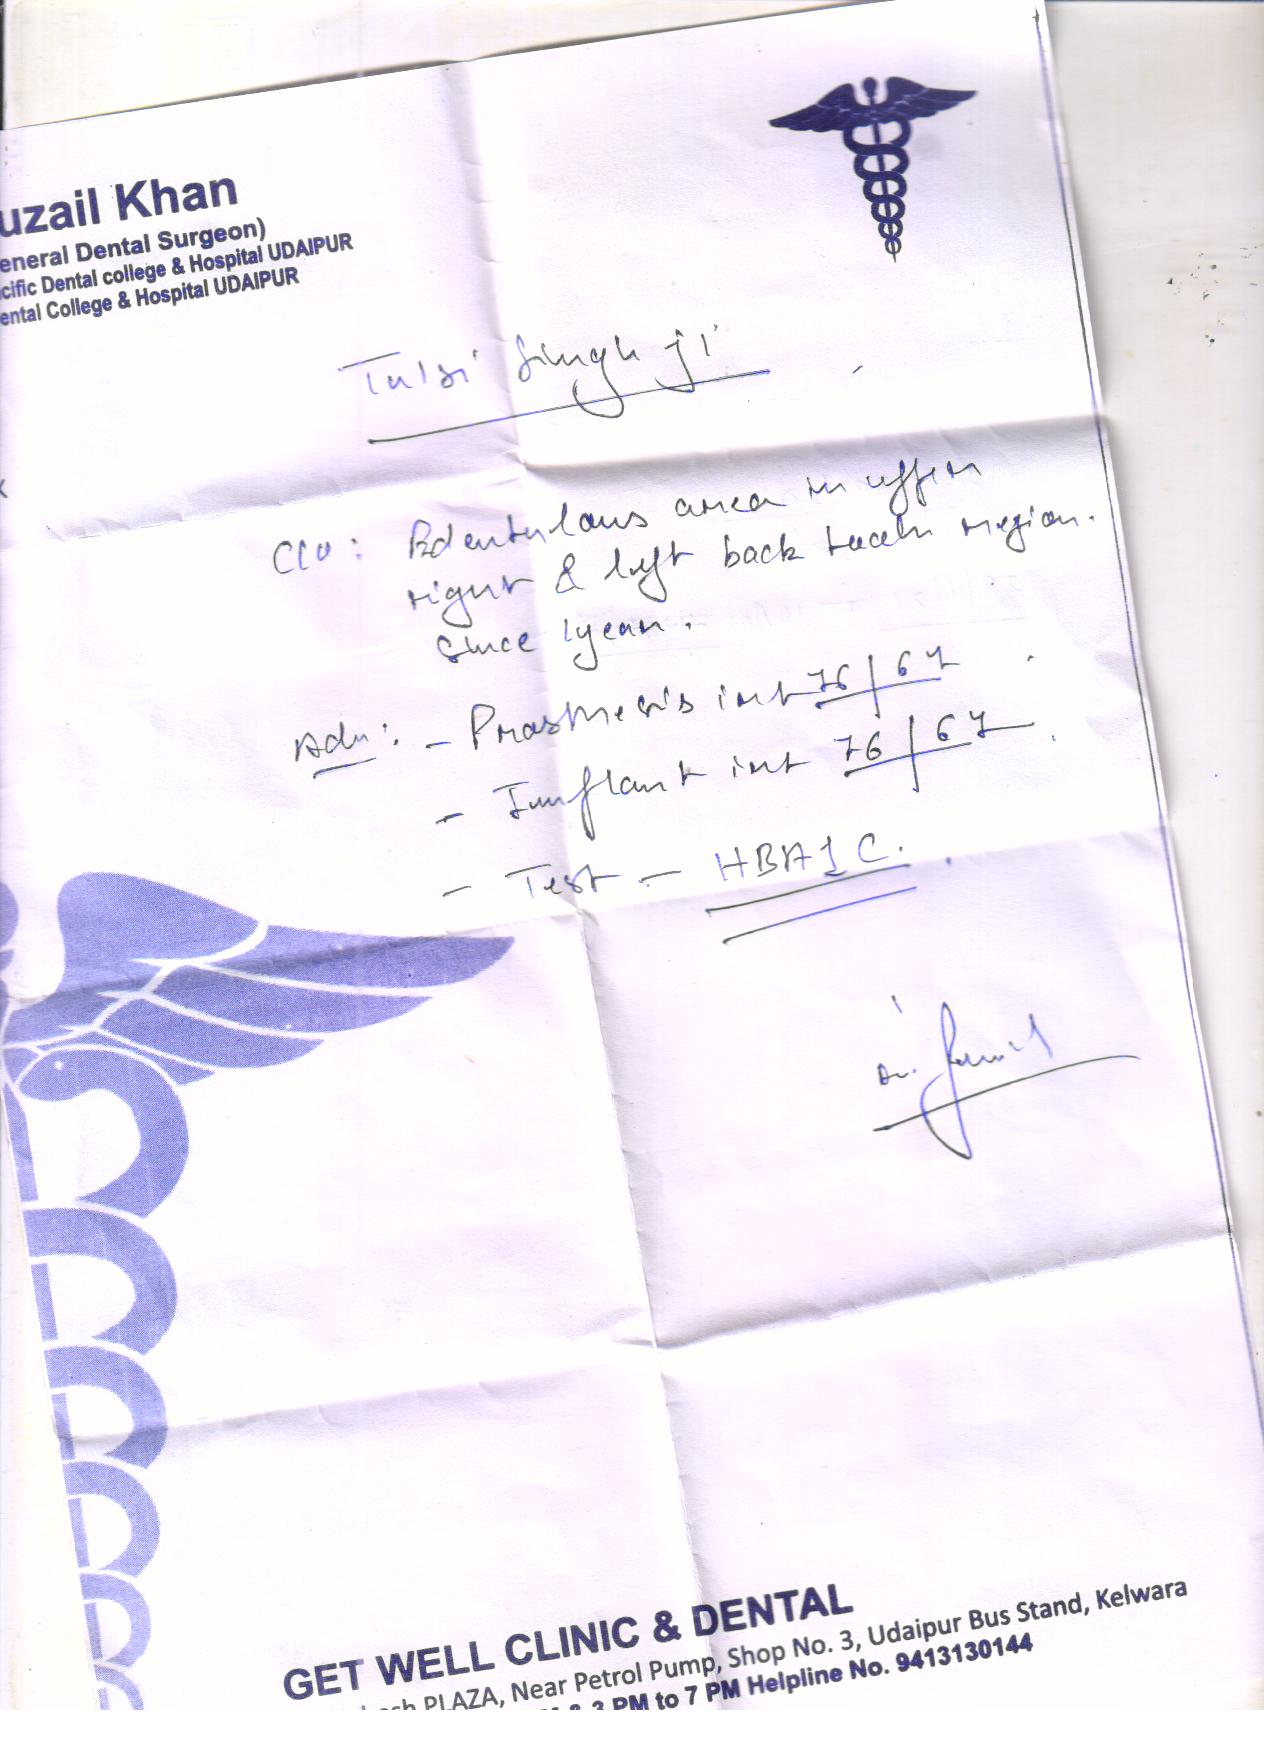 uzail Khan
eneral Dental Surgeon)
cific Dental college & Hospital UDAIPUR
ental College & Hospital UDAIPUR
Tulsi Singh ji
C/o : Edentulous area in upper
right & left back teeth region.
Since 1 year.
Adv : - Prosthesis irt 76 | 67
- Implant irt 76 | 67
- Test - HBA1C.
Dr.
GET WELL CLINIC & DENTAL
PLAZA, Near Petrol Pump, Shop No. 3, Udaipur Bus Stand, Kelwara
& 3 PM to 7 PM Helpline No. 9413130144